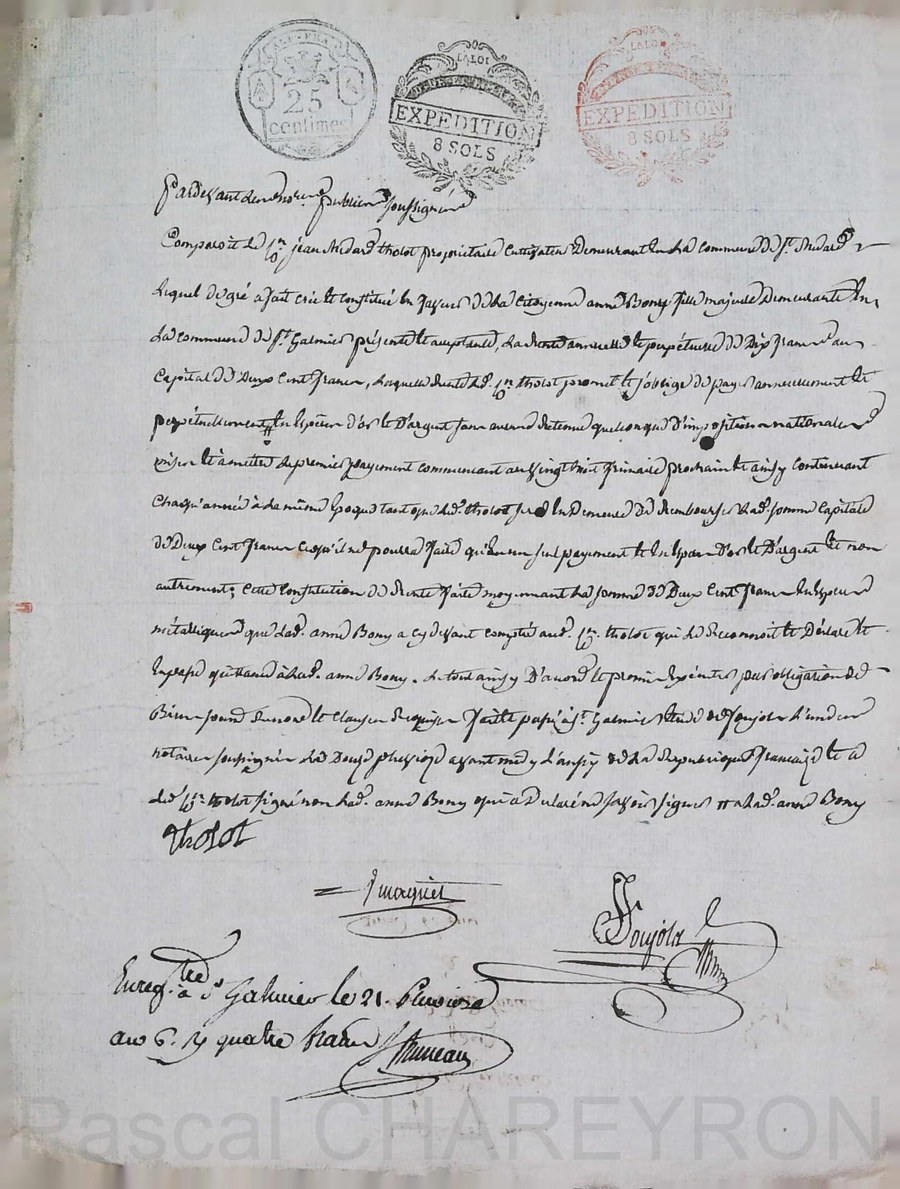 25
centimes
LA LOI
EXPEDITION
8 SOLS
LA LOI
EXPEDITION
8 SOLS
Pardevant les notaires publics soussignés
Comparoit le Cen jean Medard tholot propriétaire cultivateur Demeurant en La commune de St. Medard
Lequel de gré a fait créé et constitué en faveur de La Citoyenne anne Bony fille majeure demeurante En
La commune de St. Galmier présente et acceptante, La Rente annuelle et perpétuelle de Dix francs au
Capital de Deux Cent francs, Laquelle Rente led. Cen tholot promet et s'oblige de payer annuellement et
perpétuellement en Espèces d'or et D'argent sans aucune Retenue quelconque D'imposition nationale
mise et à mettre Le premier payement commencant au vingt huit frimaire prochain et ainsy continuant
Chaqu'année à La même Epoque tant que led. tholot sera En Demeure De Rembourser Lad. somme Capitale
De Deux Cent francs ce qu'il ne pourra faire qu'en un seul payement et En Espèces D'or et D'argent et non
autrement; Cette Constitution de Rente faite moyennant La somme de Deux Cent francs En Espèces
métalliques que Lad. anne Bony a cy devant compté aud. Cen tholot qui Le Reconnoit et Déclare et
En passe quittance à Lad. anne Bony. Le tout ainsy D'acord et promis Exécuter par obligation de
Biens Renoncé et Clauses Requises fait et passé à St. Galmier Etude de Soujols L'un des
notaires soussignés Le Douze pluviose avant midy L'an six de La Republique française et a
Led. Cen tholot signé non Lad. anne Bony qui a Déclaré ne savoir signer Lad. anne Bony
tholot
Soujols
Enregistré à St Galmier le 21. Pluviose
an 6. R quatre francs
Pascal CHAREYRON